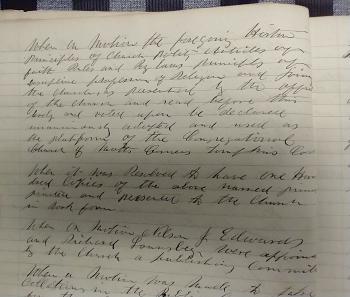 When on Motion the foregoing
principles of Church Polity Articles of
faith Rules and By laws principles of
discipline profession of Religion and
the churches as presented by the
of the Church and read before this
body and voted upon be declared
unanimously adopted and used as
the platform of the Congregational
Church of
When it was Resolved to have one
dred Copies of the above named
printed and presented to the Church
in book form
When on Motion Nelson J. Edwards
and Richard were
by the Church a publishing
When a Motion was made to take
Collections in the